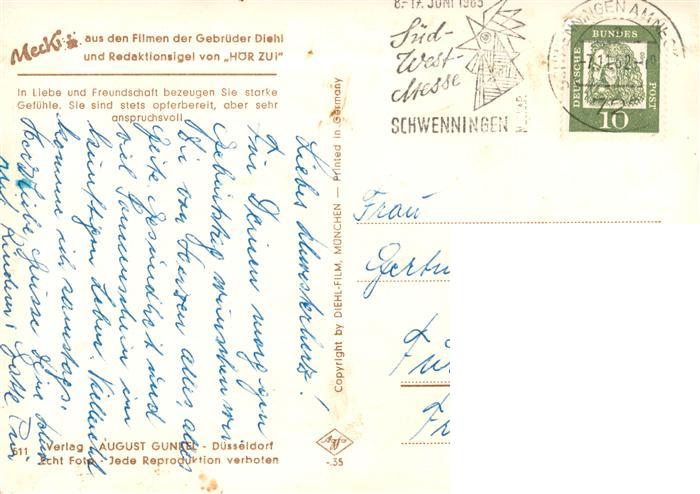 Mecki
aus den Filmen der Gebrüder Diehl
und Redaktionsigel von „HÖR ZU!"
In Liebe und Freundschaft bezeugen Sie starke
Gefühle. Sie sind stets opferbereit, aber sehr
anspruchsvoll
Liebes Schwesterherz!
Für Deinen morgigen
Geburtstag wünschen wir
Dir von Herzen alles, alles
Gute, Gesundheit und
viel Sonnenschein im
künftigen Leben. Vielleicht
kommen wir samstags.
Herzliche Grüsse
Kinder,
Verlag AUGUST GUNKEL - Düsseldorf
Echt Foto - Jede Reproduktion verboten
611
Copyright by DIEHL-FILM, MÜNCHEN — Printed in Germany
Agfa
-.35
8.-17. JUNI 1963
Süd-
West-
Messe
SCHWENNINGEN
DEUTSCHE BUNDES POST
10
Frau